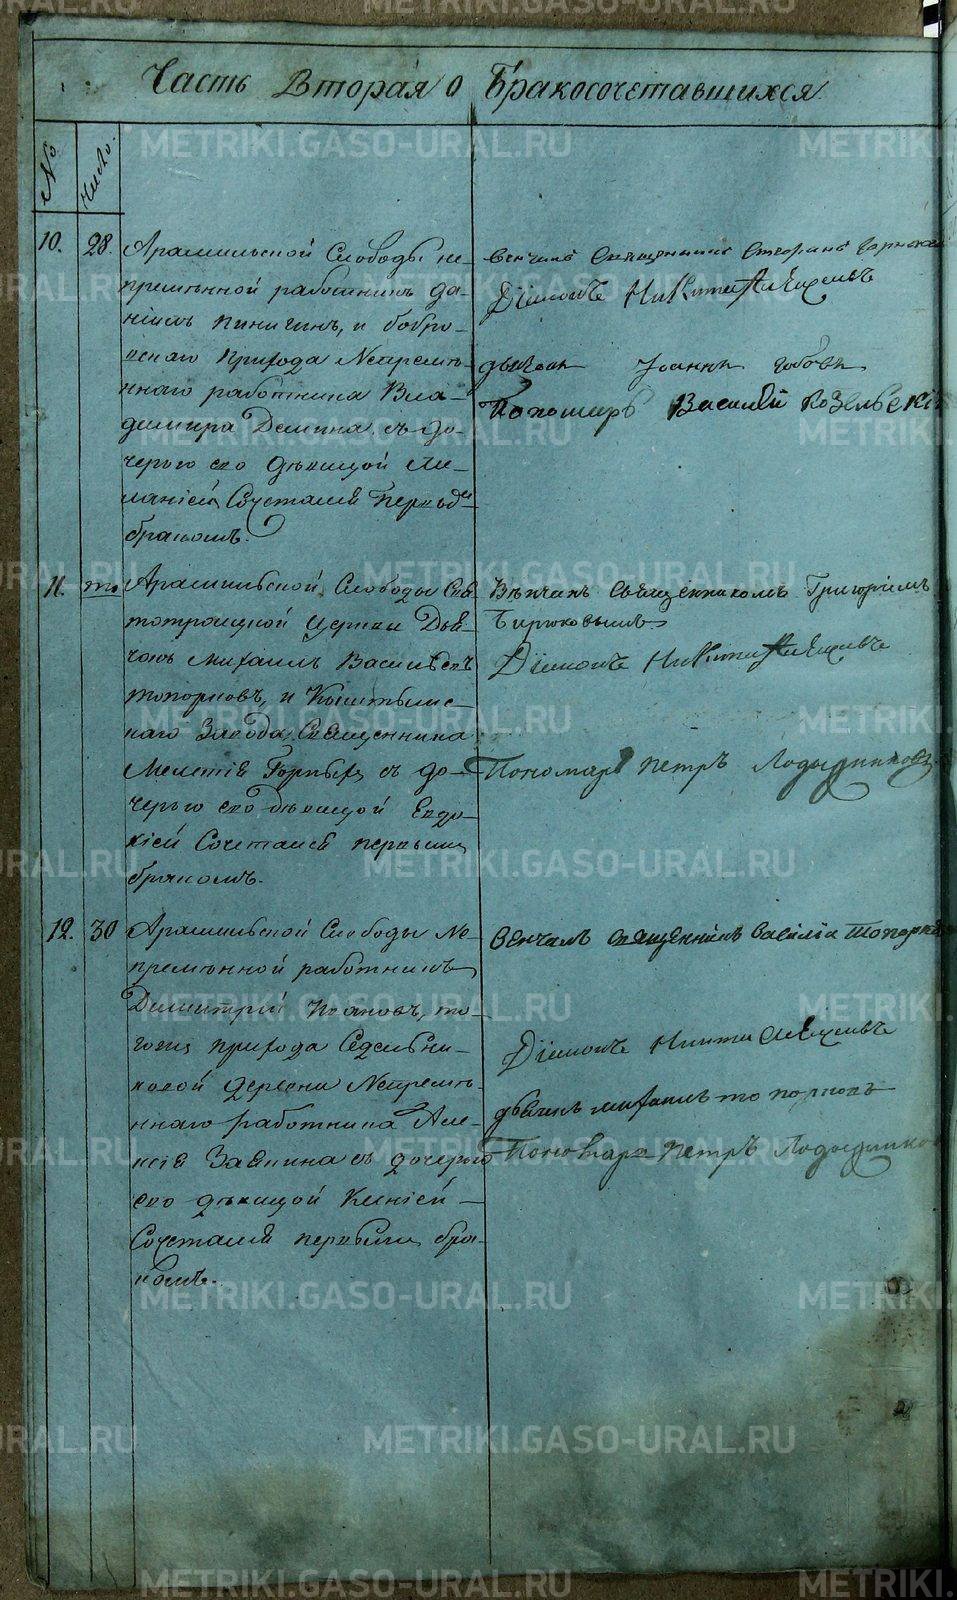 Часть Вторая о Бракосочетавшихся
№
Число.
10. 28. Арамильской Слободы не-
премѣнной работникъ Да-
ніилъ Пинигинъ, и бобро-
вскаго прихода Непремѣ-
ннаго работника Вла-
димира Демина съ до-
черью его дѣвицой Ме-
ланіей Сочетался первымъ
бракомъ.
венчалъ Священникъ Стефанъ
Діаконъ Никита
дьячокъ Іоаннъ
Пономарь Василей Козельскій
11. то Арамильской Слободы Свя-
тотроицкой Церкви Дья-
чокъ Михаилъ Васильевъ
топорковъ, и Кыштымс-
каго Завода Священника
Мелетія съ до-
черью его дѣвицой Евдо-
кіей Сочетался первымъ
бракомъ.
Вѣнчанъ священникомъ Григоріемъ
Бирюковымъ
Діаконъ Никита
Пономарь Петръ
12. 30 Арамильской Слободы Не-
премѣнной работникъ
Димитрій Ивановъ, то-
гожъ прихода Седельни-
ковой деревни Непремѣ-
ннаго работника Але-
ксія съ дочерью
его дѣвицой Ксеніей
Сочетался первымъ бра-
комъ.
венчалъ священникъ василій Топорковъ
Діаконъ Никита
дьячекъ михаилъ топорковъ
Пономарь Петръ
METRIKI.GASO-URAL.RU